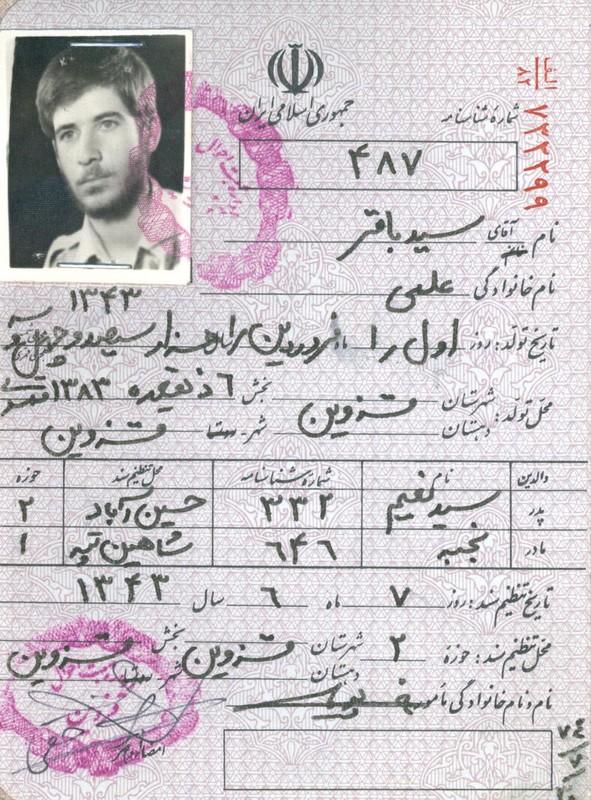 جمهوری اسلامی ایران
الف
۸۲
۷۲۲۲۹۹
شمارهٔ شناسنامه
۴۸۷
نام آقای سید باقر
نام خانوادگی علمی
۱۳۴۳
تاریخ تولد: روز اول ماه فروردین هزار سیصد و چهل و
۶ ذیقعده ۱۳۸۳ قمری
محل تولد: شهرستان قزوین بخش
دهستان شهر قزوین
والدین نام شمارهٔ شناسنامه محل تنظیم سند حوزه
پدر سید مقیم ۳۳۲ حسین آباد ۲
مادر نجیبه ۶۴۶ شاهین تپه ۱
تاریخ تنظیم سند: روز ۷ ماه ۶ سال ۱۳۴۳
محل تنظیم سند: حوزه ۲ شهرستان قزوین بخش قزوین
دهستان شهر
نام و نام خانوادگی مأمور